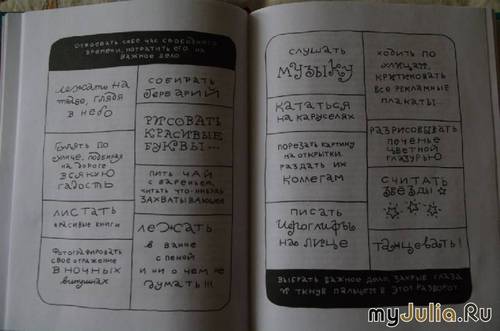 отвоевать себе час свободного
времени, потратить его на
важное дело
лежать на
глядя
в небо
гулять по
улице, подбирая
на дороге
всякую
гадость
листать
красивые книги
фотографировать
свое отражение
в ночных
витринах
собирать
гербарий
рисовать
красивые
буквы...
пить чай
с вареньем,
читать что-нибудь
захватывающее
лежать
в ванне
с пеной
и ни о чем не
думать!!!
слушать
музыку
кататься
на каруселях
порезать картину
на открытки,
раздать их
коллегам
писать
иероглифы
на лице
ходить по
улицам,
критиковать
все рекламные
плакаты...
разрисовывать
печенье
цветной
глазурью
считать
звезды
танцевать!
выбрать важное дело, закрыв глаза
и ткнув пальцем в этот разворот
myJulia.Ru